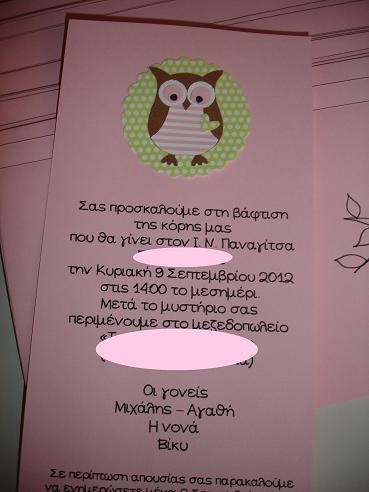 Σας προσκαλούμε στη βάφτιση
της κόρης μας
που θα γίνει στον Ι. Ν. Παναγίτσα
την Κυριακή 9 Σεπτεμβρίου 2012
στις 14:00 το μεσημέρι.
Μετά το μυστήριο σας
περιμένουμε στο μεζεδοπωλείο
Οι γονείς
Μιχάλης – Αγαθή
Η νονά
Βίκυ
Σε περίπτωση απουσίας σας παρακαλούμε
να ενημερώσετε